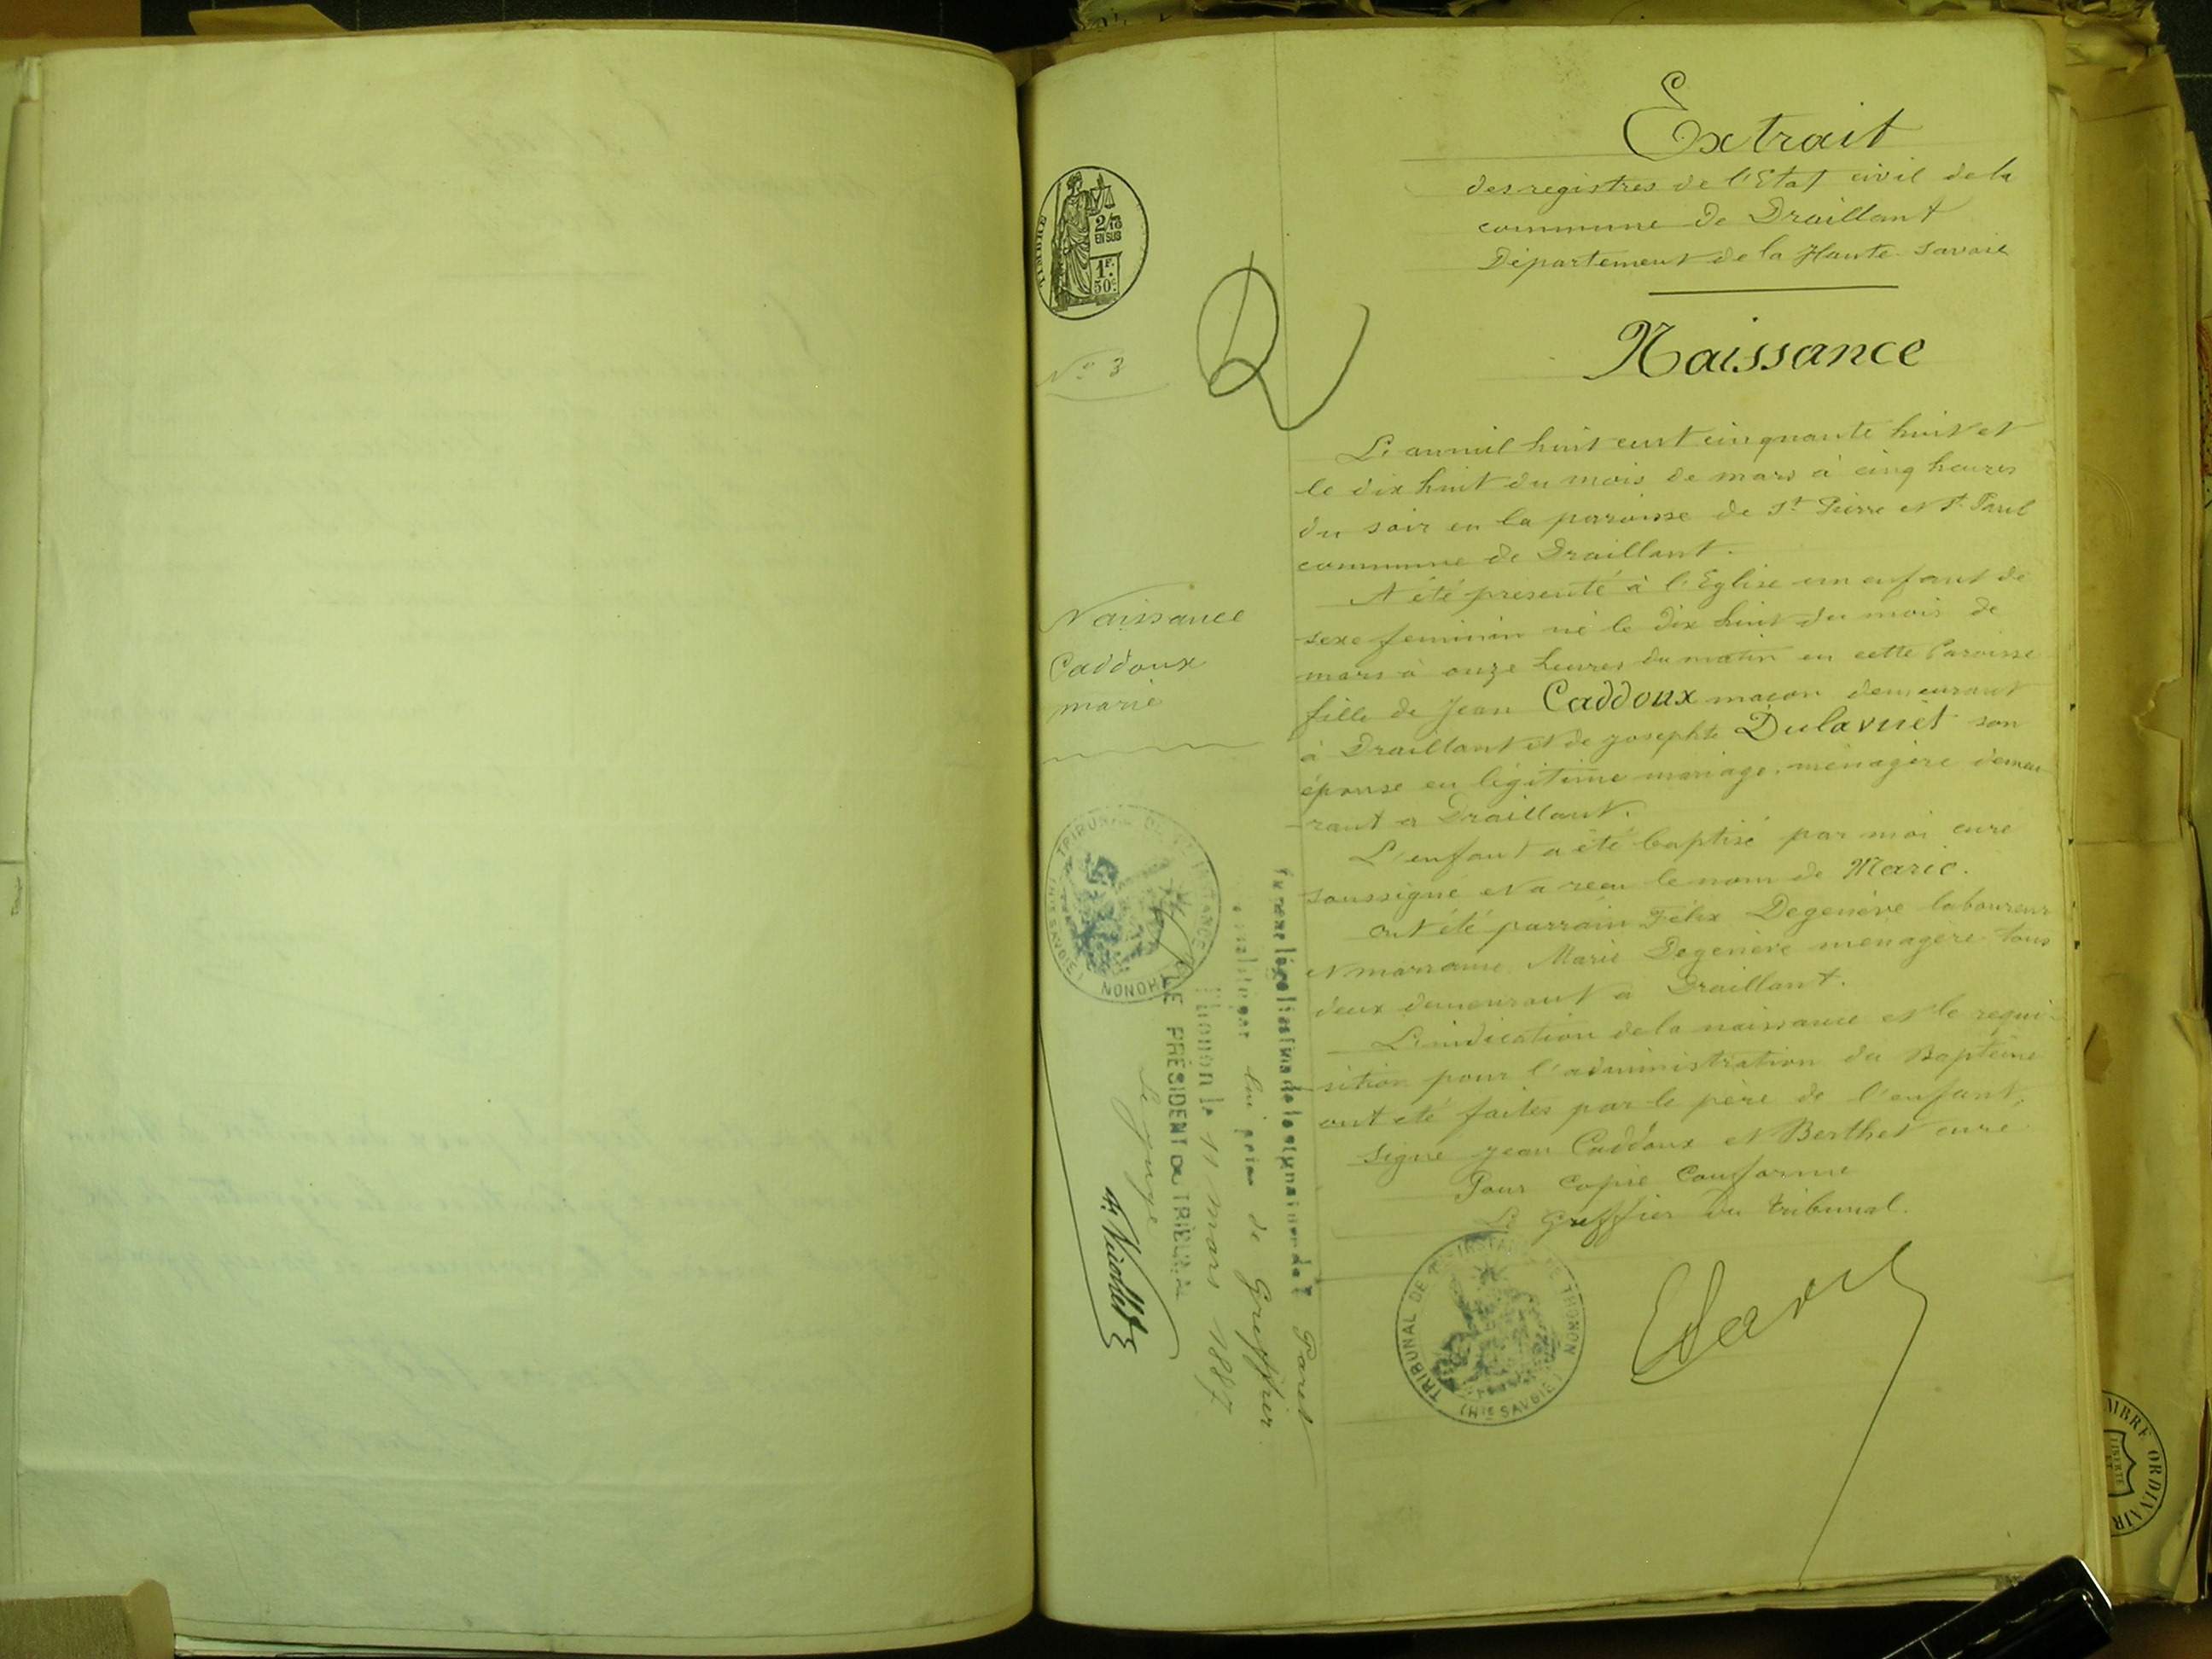 Extrait
des registres de l'Etat civil de la
commune de Draillant
Département de la Haute Savoie
Naissance
TIMBRE
2/10
EN SUS
1F.
50c.
No 3
L'an mil huit cent cinquante huit et
le dix huit du mois de mars à cinq heures
du soir en la paroisse de St Pierre et St Paul
commune de Draillant.
A été présenté à l'Eglise un enfant de
sexe feminin né le dix huit du mois de
mars à onze heures du matin en cette Paroisse
fille de Jean Caddoux maçon demeurant
à Draillant et de josephte Dulavuet son
épouse en légitime mariage, ménagère demeu-
rant a Draillant.
L'enfant a été baptisé par moi curé
soussigné et a reçu le nom de Marie.
ont été parrain Félix Degenève laboureur
et marraine Marie Degenève ménagère tous
deux demeurant a Draillant.
L'indication de la naissance et le requi-
sition pour l'administration du Baptême
ont été faites par le père de l'enfant,
signé jean Caddoux et Berthet curé
Pour copie Conforme
Le Greffier du tribunal.
TRIBUNAL DE 1RE INSTANCE DE THONON
(HTE SAVOIE)
Naissance
Caddoux
marie
TRIBUNAL DE 1RE INSTANCE
THONON
(HTE SAVOIE)
de Greffier
Thonon le 11 mars 1887
LE PRÉSIDENT DU TRIBUNAL
Le juge
TIMBRE ORDINAIR